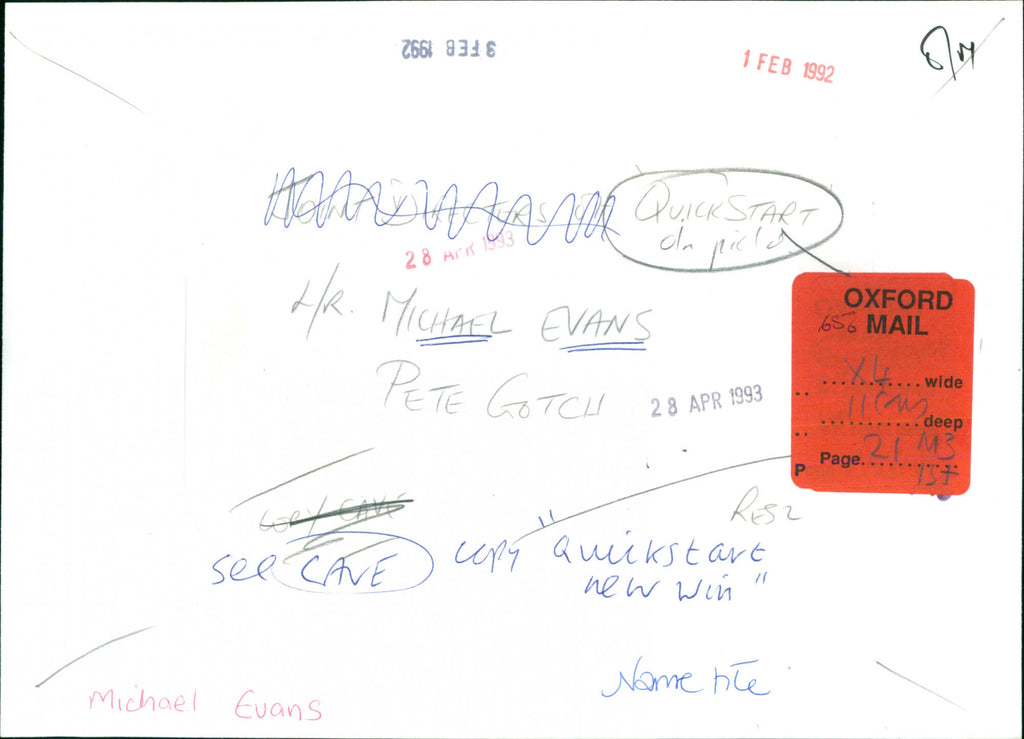 3 FEB 1992
1 FEB 1992
QUICKSTART
on pic
28 APR 1993
L/R. MICHAEL EVANS
PETE GOTCH
28 APR 1993
OXFORD
656 MAIL
X4 wide
11cms deep
Page 21 M3
1st
P
COPY CAVE
RES 2
see CAVE copy "Quickstart
new win"
Name tite
Michael Evans